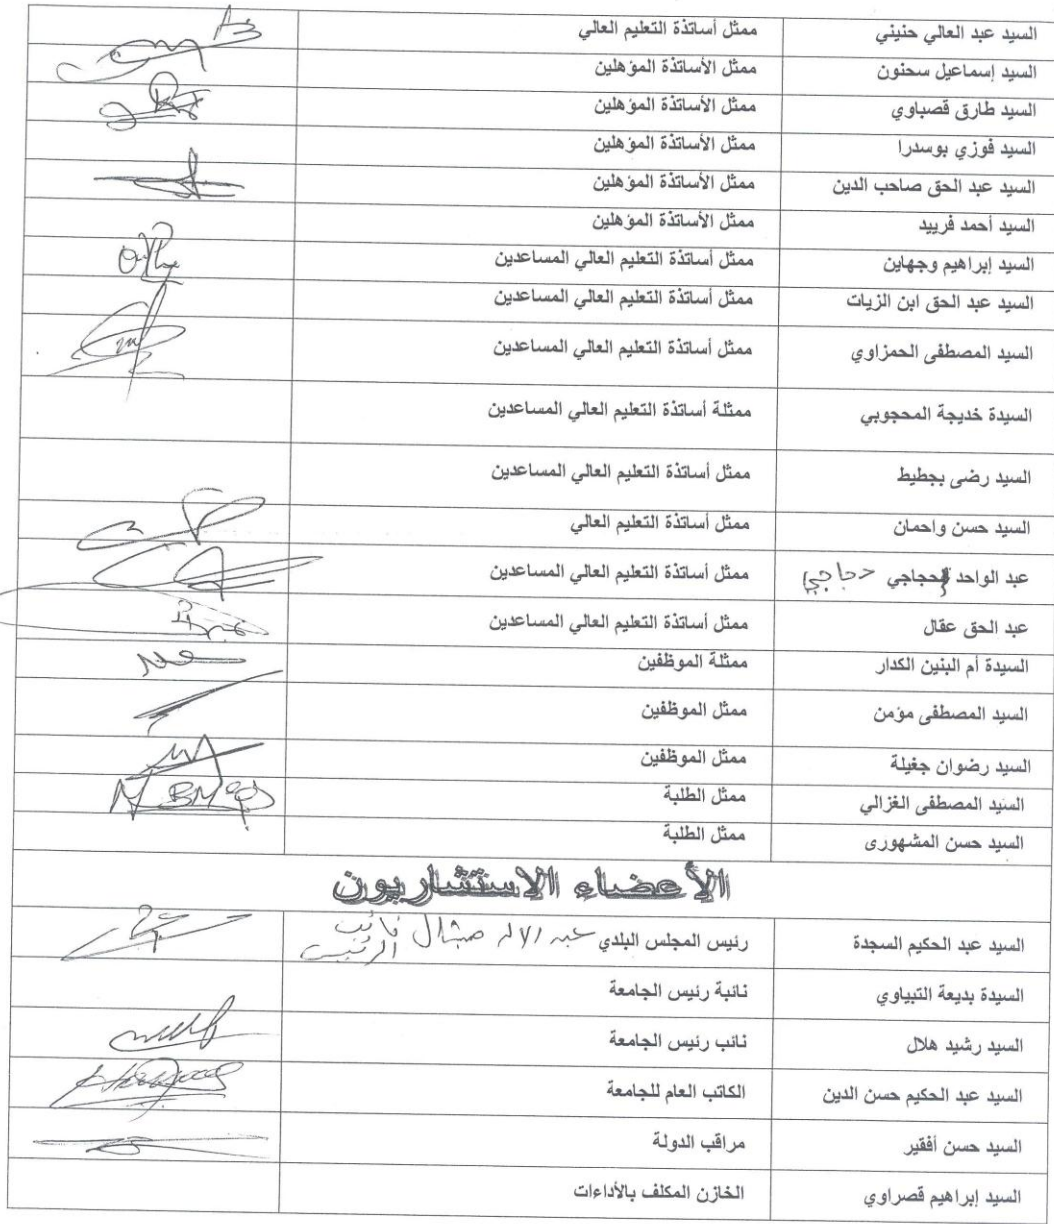 السيد عبد العالي حنيني ممثل أساتذة التعليم العالي
السيد إسماعيل سحنون ممثل الأساتذة المؤهلين
السيد طارق قصباوي ممثل الأساتذة المؤهلين
السيد فوزي بوسدرا ممثل الأساتذة المؤهلين
السيد عبد الحق صاحب الدين ممثل الأساتذة المؤهلين
السيد أحمد فرييد ممثل الأساتذة المؤهلين
السيد إبراهيم وجهاين ممثل أساتذة التعليم العالي المساعدين
السيد عبد الحق ابن الزيات ممثل أساتذة التعليم العالي المساعدين
السيد المصطفى الحمزاوي ممثل أساتذة التعليم العالي المساعدين
السيدة خديجة المحجوبي ممثلة أساتذة التعليم العالي المساعدين
السيد رضى بجطيط ممثل أساتذة التعليم العالي المساعدين
السيد حسن واحمان ممثل أساتذة التعليم العالي
عبد الواحد لحجاجي حجاجي ممثل أساتذة التعليم العالي المساعدين
عبد الحق عقال ممثل أساتذة التعليم العالي المساعدين
السيدة أم البنين الكدار ممثلة الموظفين
السيد المصطفى مؤمن ممثل الموظفين
السيد رضوان جغيلة ممثل الموظفين
السيد المصطفى الغزالي ممثل الطلبة
السيد حسن المشهورى ممثل الطلبة
الأعضاء الاستشاريون
السيد عبد الحكيم السجدة رئيس المجلس البلدي عبد الاله نائب الرئيس
السيدة بديعة التبياوي نائبة رئيس الجامعة
السيد رشيد هلال نائب رئيس الجامعة
السيد عبد الحكيم حسن الدين الكاتب العام للجامعة
السيد حسن أفقير مراقب الدولة
السيد إبراهيم قصراوي الخازن المكلف بالأداءات